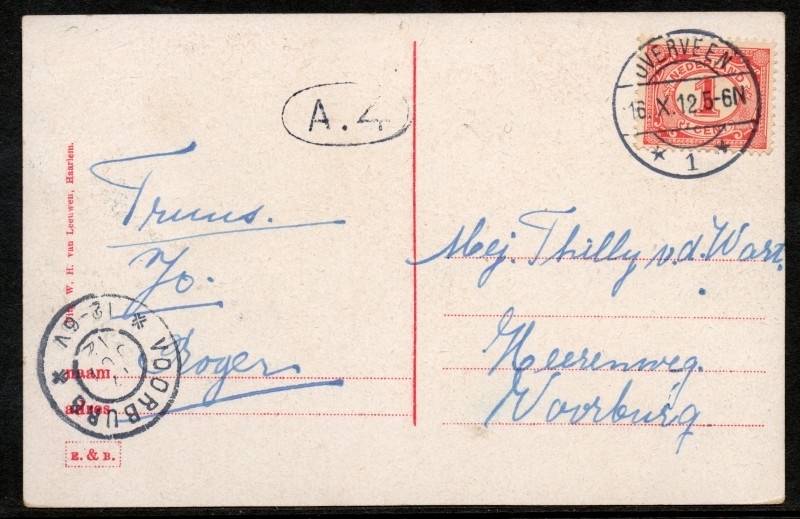 A.4
Uitg. W. H. van Leeuwen, Haarlem.
Truus.
Jo.
Roger
naam
adres
Z. & B.
VOORBURG
12-6V
IJVERVEEN
16 X.12 5-6N
1
NEDERLAND
1
CENT
Mej. Thilly v.d. Wart.
Heerenweg.
Voorburg